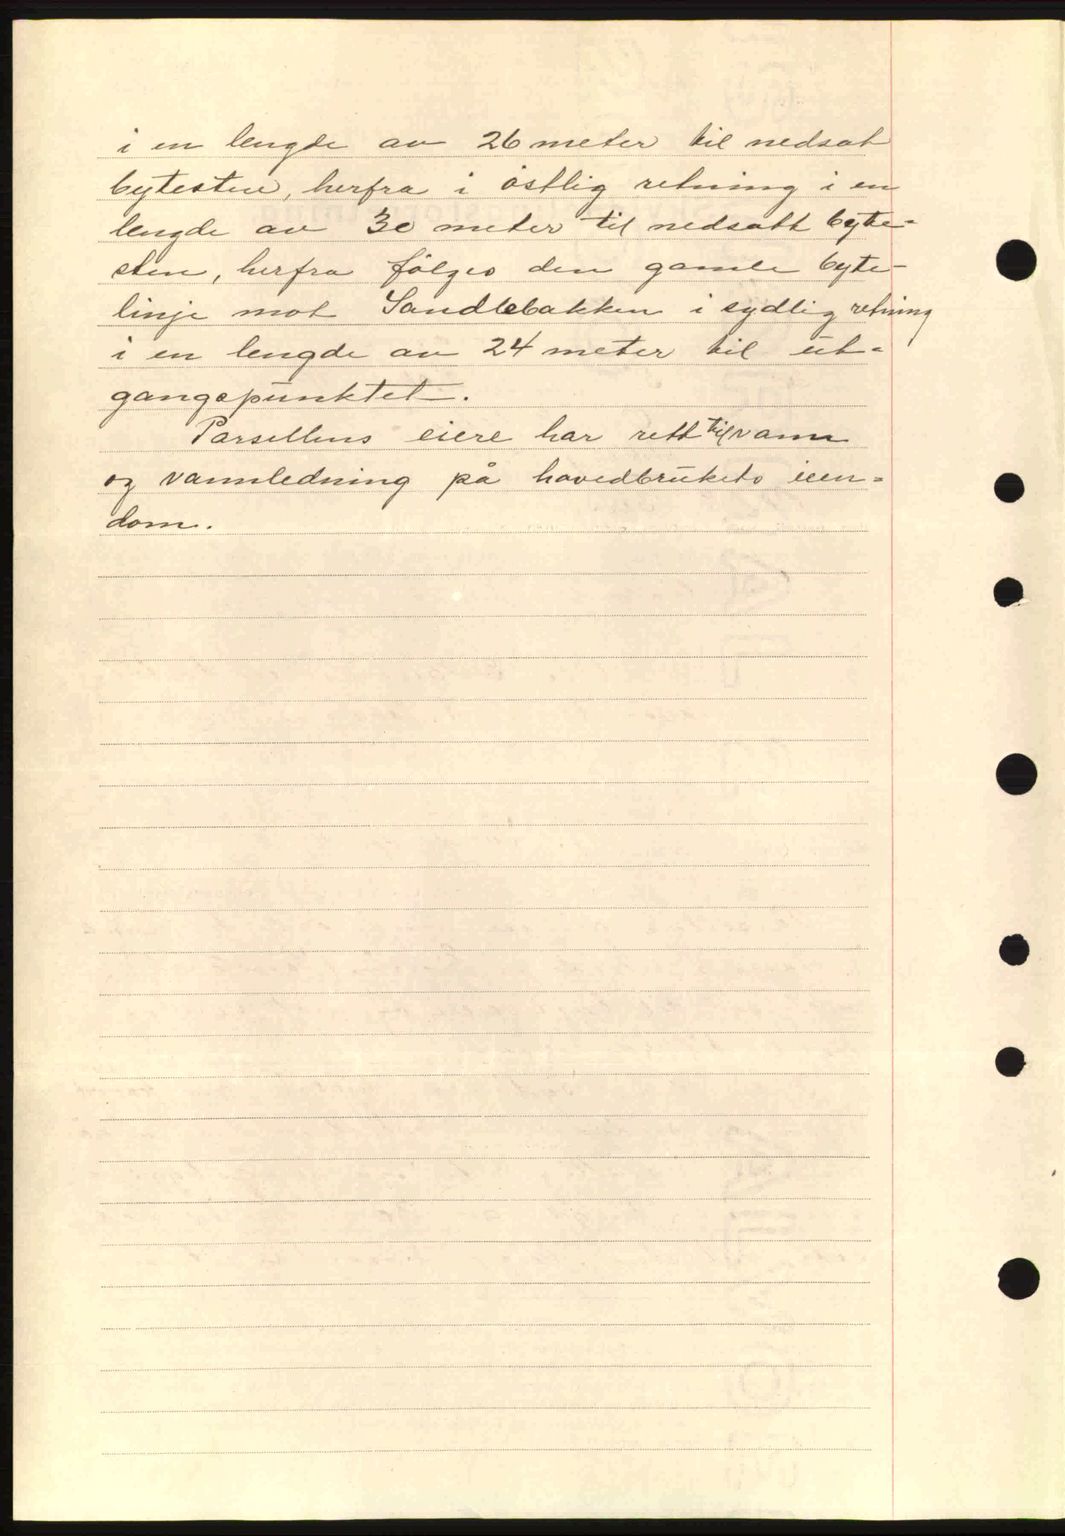 i en lengde av 26 meter til nedsat
bytesten, herfra i östlig retning i en
lengde av 30 meter til nedsatt byte-
sten, herfra følges den gamle byte-
linje mot Sandlebakken i sydlig retning
i en lengde av 24 meter til ut-
gangspunktet.
Parsellens eiere har rett til vann
og vannledning på hovedbrukets eien-
dom.